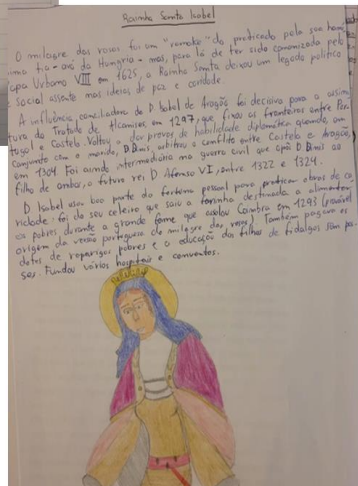 Rainha Santa Isabel
O milagre das rosas foi um "remake" do praticado pela sua
tia-avó da Hungria - mas, para lá de ter sido canonizada pelo
Papa Urbano VIII em 1625, a Rainha Santa deixou um legado político
social assente nas ideias de paz e caridade.
A influência conciliadora de D. Isabel de Aragão foi decisiva para a assina
tura do Tratado de Alcanises, em 1297, que fixou as fronteiras entre Por
tugal e Castela. Voltou a dar provas de habilidade diplomática quando, em
conjunto com o marido, D. Dinis, arbitrou o conflito entre Castela e Aragão,
em 1304. Foi ainda intermediária na guerra civil que opôs D. Dinis ao
filho de ambos, o futuro rei D. Afonso VI, entre 1322 e 1324.
D. Isabel usou boa parte da fortuna pessoal para praticar obras de ca
ridade: foi do seu celeiro que saiu a farinha destinada a alimentar
os pobres durante a grande fome que assolou Coimbra em 1293 (provável
origem da versão portuguesa do milagre das rosas). Também pagava os
dotes de raparigas pobres e a educação dos filhos de fidalgos sem pos
ses. Fundou vários hospitais e conventos.